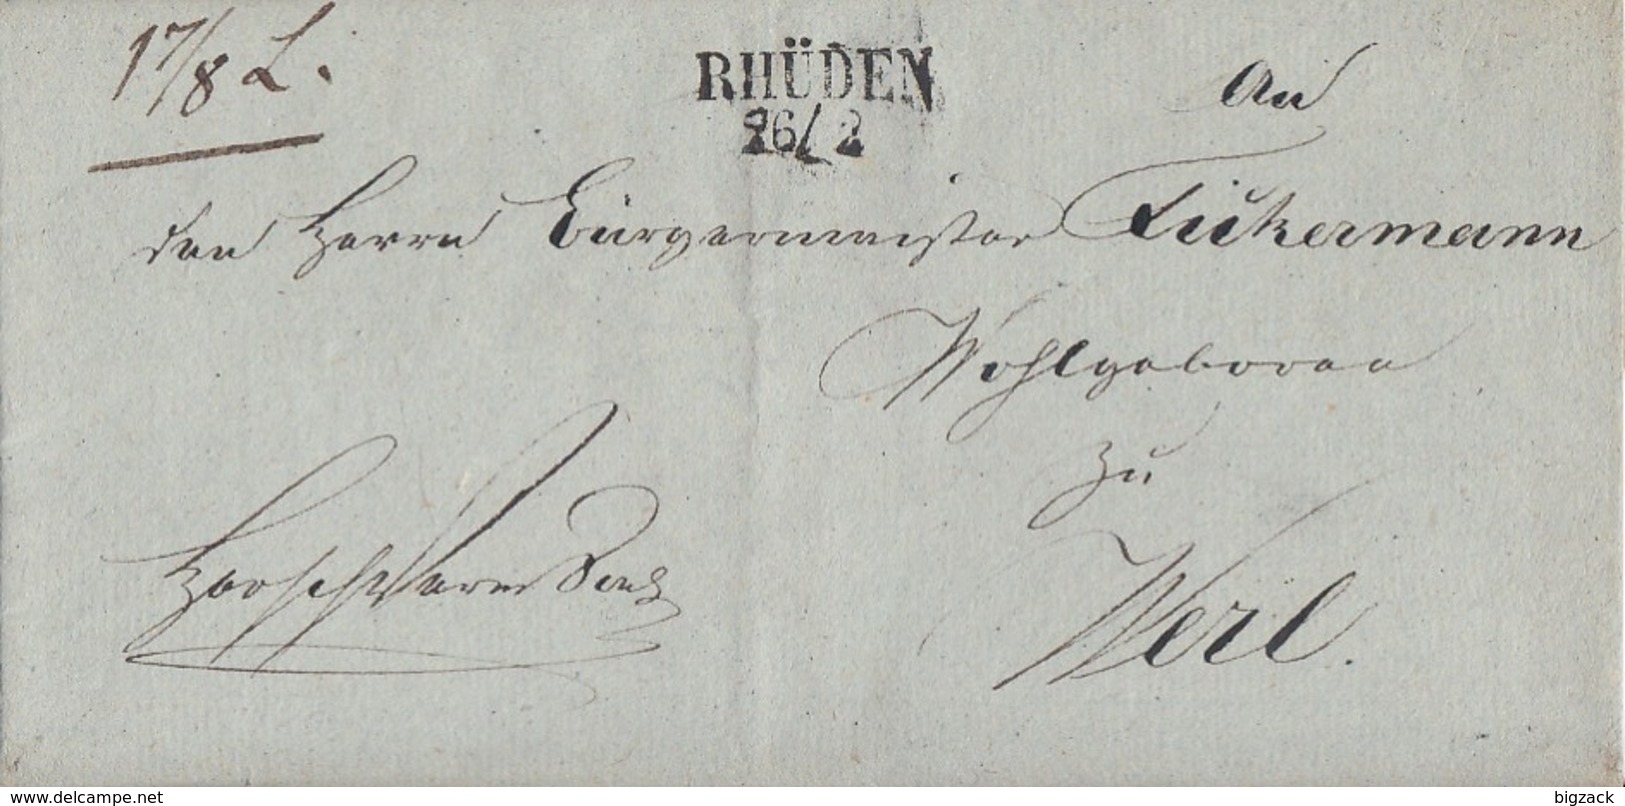 17/8 L.
RHÜDEN
26/2
An
den Herrn Bürgermeister Fickermann
Wohlgeboren
zu
Werl.
www.delcampe.net
bigzack